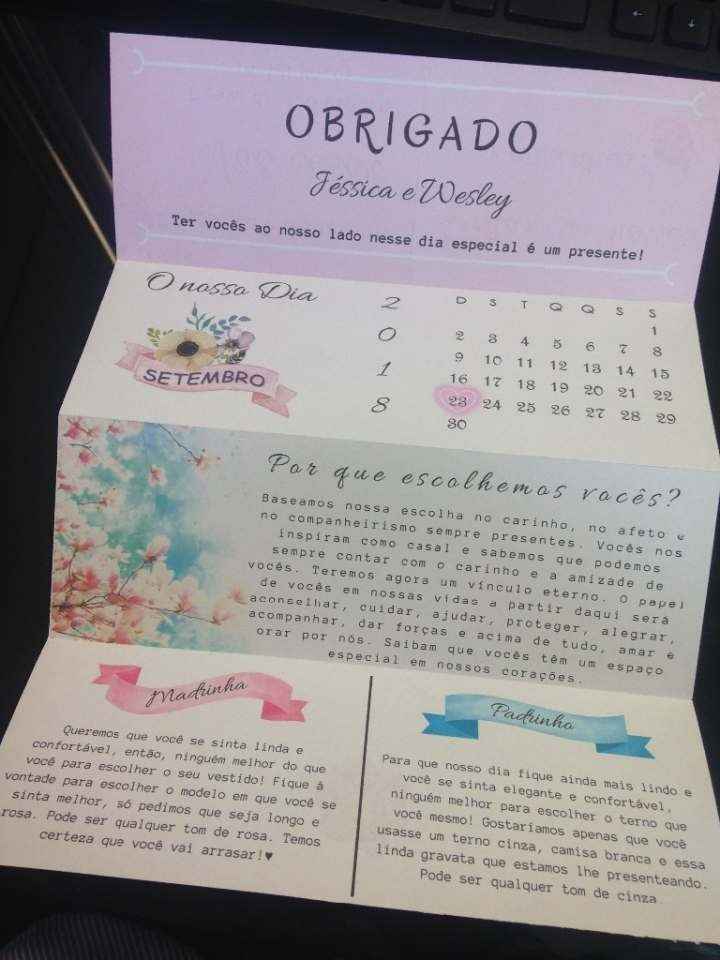 OBRIGADO
Jéssica e Wesley
Ter vocês ao nosso lado nesse dia especial é um presente!
O nosso Dia
SETEMBRO
2
0
1
8
D S T Q Q S S
1
2 3 4 5 6 7 8
9 10 11 12 13 14 15
16 17 18 19 20 21 22
23 24 25 26 27 28 29
30
Por que escolhemos vocês?
Baseamos nossa escolha no carinho, no afeto e
no companheirismo sempre presentes. Vocês nos
inspiram como casal e sabemos que podemos
sempre contar com o carinho e a amizade de
vocês. Teremos agora um vínculo eterno. O papel
de vocês em nossas vidas a partir daqui será
aconselhar, cuidar, ajudar, proteger, alegrar,
acompanhar, dar forças e acima de tudo, amar e
orar por nós. Saibam que vocês têm um espaço
especial em nossos corações.
Madrinha
Queremos que você se sinta linda e
confortável, então, ninguém melhor do que
você para escolher o seu vestido! Fique à
vontade para escolher o modelo em que você se
sinta melhor, só pedimos que seja longo e
rosa. Pode ser qualquer tom de rosa. Temos
certeza que você vai arrasar!♥
Padrinho
Para que nosso dia fique ainda mais lindo e
você se sinta elegante e confortável,
ninguém melhor para escolher o terno que
você mesmo! Gostaríamos apenas que você
usasse um terno cinza, camisa branca e essa
linda gravata que estamos lhe presenteando.
Pode ser qualquer tom de cinza